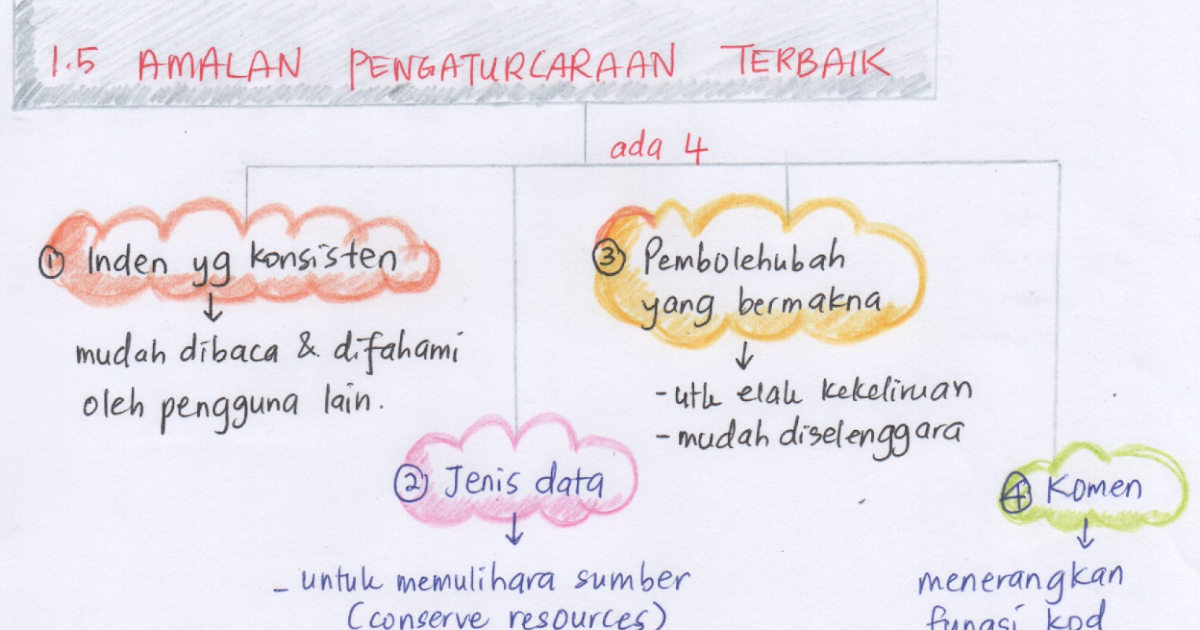 1.5 AMALAN PENGATURCARAAN TERBAIK
ada 4
① Inden yg konsisten
mudah dibaca & difahami
oleh pengguna lain.
② Jenis data
- untuk memulihara sumber
(conserve resources)
③ Pembolehubah
yang bermakna
- utk elak kekeliruan
- mudah diselenggara
④ Komen
menerangkan
fungsi kod